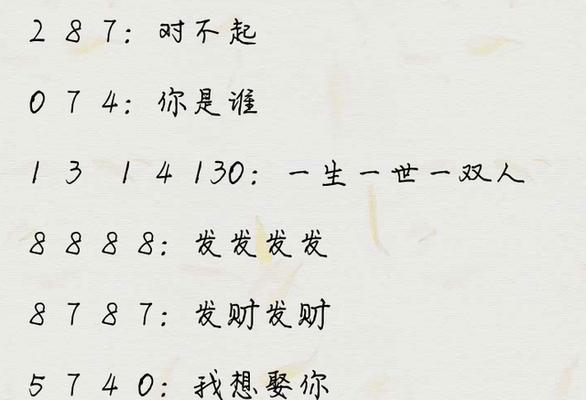 2 8 7: 对不起
0 7 4: 你是谁
1 3 1 4 130: 一生一世一双人
8 8 8 8: 发发发发
8 7 8 7: 发财发财
5 7 4 0: 我想娶你